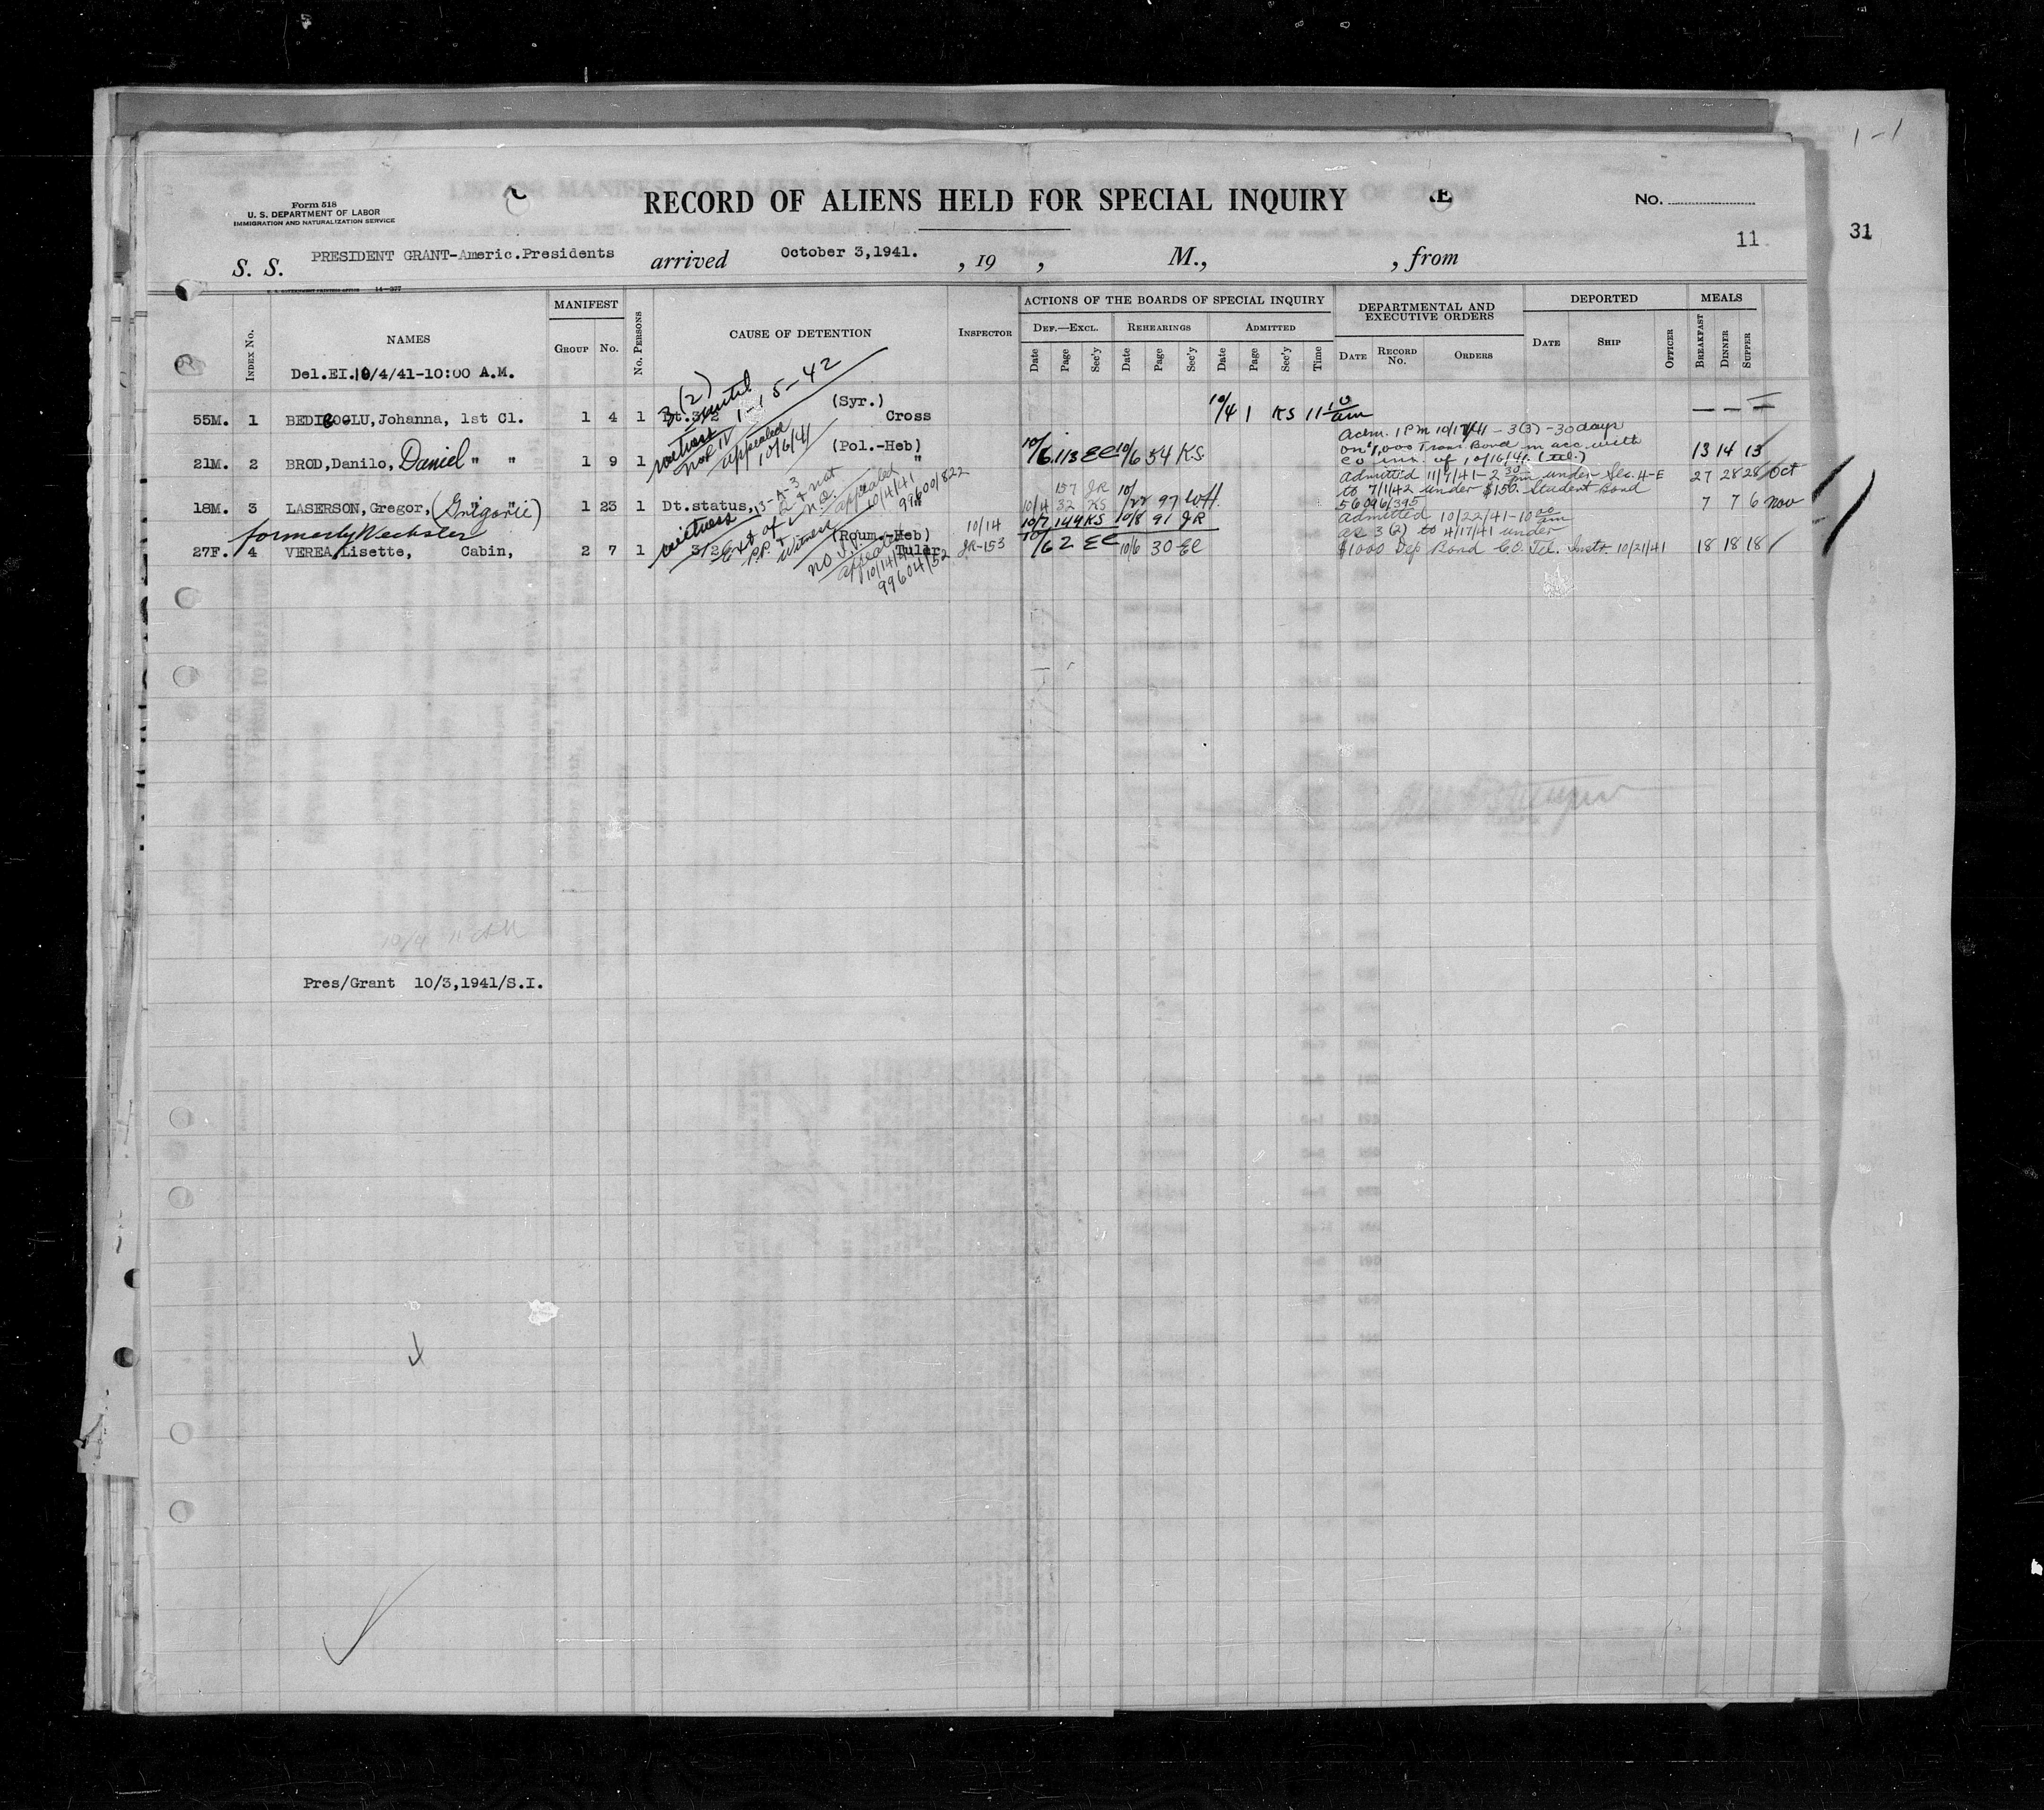 1-1
Form 518
U. S. DEPARTMENT OF LABOR
IMMIGRATION AND NATURALIZATION SERVICE
RECORD OF ALIENS HELD FOR SPECIAL INQUIRY
No.
11
31
S. S. PRESIDENT GRANT-Americ.Presidents arrived October 3,1941. , 19 , M., , from
14-377
Index No.
NAMES
MANIFEST
Group No.
No. Persons
CAUSE OF DETENTION
Inspector
ACTIONS OF THE BOARDS OF SPECIAL INQUIRY
Def.—Excl. Rehearings Admitted
Date Page Sec'y Date Page Sec'y Date Page Sec'y Time
DEPARTMENTAL AND EXECUTIVE ORDERS
Date Record No. Orders
DEPORTED
Date Ship Officer
MEALS
Breakfast Dinner Supper
Del.EI.10/4/41-10:00 A.M.
3(2)
until
1-15-42
55M. 1 BEDIKOGLU, Johanna, 1st Cl. 1 4 1 Dt.3/2 (Syr.) Cross 10/4 1 KS 11 10 am — — —
witness
appealed
10/6/41
21M. 2 BROD, Danilo, Daniel " " 1 9 1 (Pol.-Heb) " 10/6 113 EC 10/6 54 KS
Adm. 1 PM 10/17/41 - 3(3) - 30 days
on $1,000 Tran. Bond in acc. with
CO ins. of 10/16/41. (Tel.)
13 14 13
18M. 3 LASERSON, Gregor, (Grigorii) " " 1 23 1 Dt.status, 13-A-3
appealed
10/14/41
157 JR
10/4 32 KS 10/22 97 WH
10/7 149 KS 10/8 91 JR
Admitted 11/7/41 - 2 30 pm under Sec. 4-E
to 7/1/42 under $150. Student Bond
56096/395
27 28 28 Oct
7 7 6 Nov
formerly Wechsler
27F. 4 VEREA, Lisette, Cabin, 2 7 1 witness 3/2 Ext of
P.P. + witness
(Roum.-Heb) Tular
appeal
10/14/41
99604/52
10/14
JR-153
10/6 2 EC 10/6 30 EC
Admitted 10/22/41 - 10 00 am
as 3(2) to 4/17/41 under
$1000 Dep Bond CO. Tel. Instr 10/21/41
18 18 18
10/4 11 AM
Pres/Grant 10/3,1941/S.I.